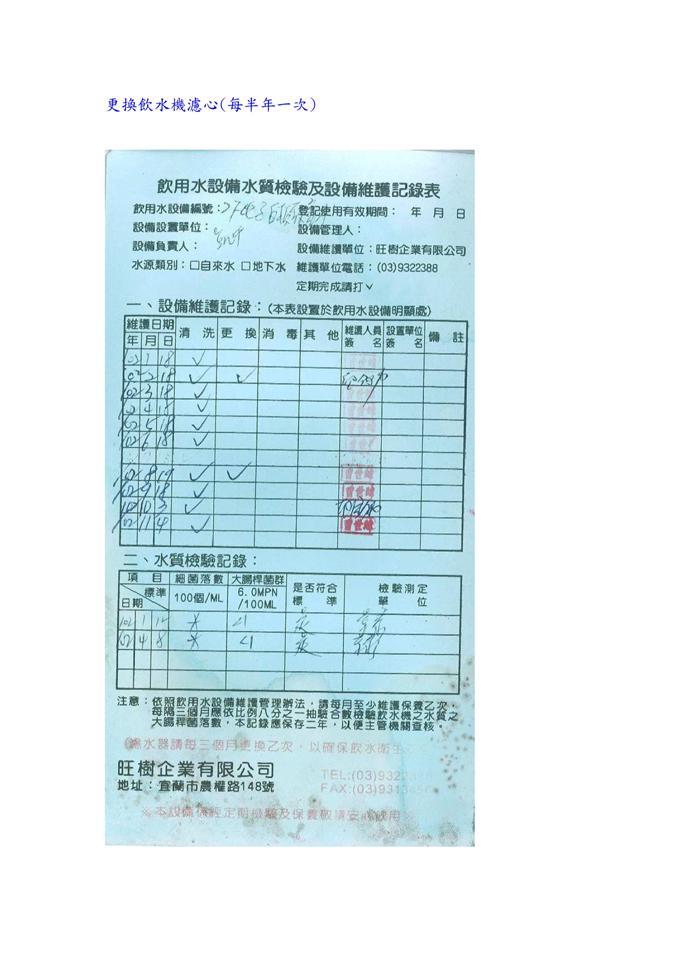 更換飲水機濾心(每半年一次)
飲用水設備水質檢驗及設備維護記錄表
飲用水設備編號： 登記使用有效期間： 年 月 日
設備設置單位： 設備管理人：
設備負責人： 設備維護單位：旺樹企業有限公司
水源類別：□自來水 □地下水 維護單位電話：(03)9322388
定期完成請打✓
一、設備維護記錄：(本表設置於飲用水設備明顯處)
維護日期 清洗 更換 消毒 其他 維護人員簽名 設置單位簽名 備註
年 月 日
102 1 18 ✓
102 2 18 ✓ ✓
102 3 18 ✓
102 4 18 ✓
102 5 18 ✓
102 6 18 ✓
102 8 19 ✓ ✓ 曾世緯
102 9 18 ✓ 曾世緯
102 10 3 ✓
102 11 4 ✓ 曾世緯
二、水質檢驗記錄：
項目 細菌落數 大腸桿菌群 是否符合標準 檢驗測定單位
標準 100個/ML 6.0MPN/100ML
日期
102 1 <1
102 4 8 <1
注意：依照飲用水設備維護管理辦法，請每月至少維護保養乙次，
每隔三個月應依比例八分之一抽驗台數檢驗飲水機之水質之
大腸桿菌落數，本記錄應保存二年，以便主管機關查核。
濾水器請每三個月更換乙次，以確保飲水衛生
旺樹企業有限公司 TEL:(03)9322388
地址：宜蘭市農權路148號 FAX:(03)9313
※本設備係經定期檢驗及保養敬請安心飲用※